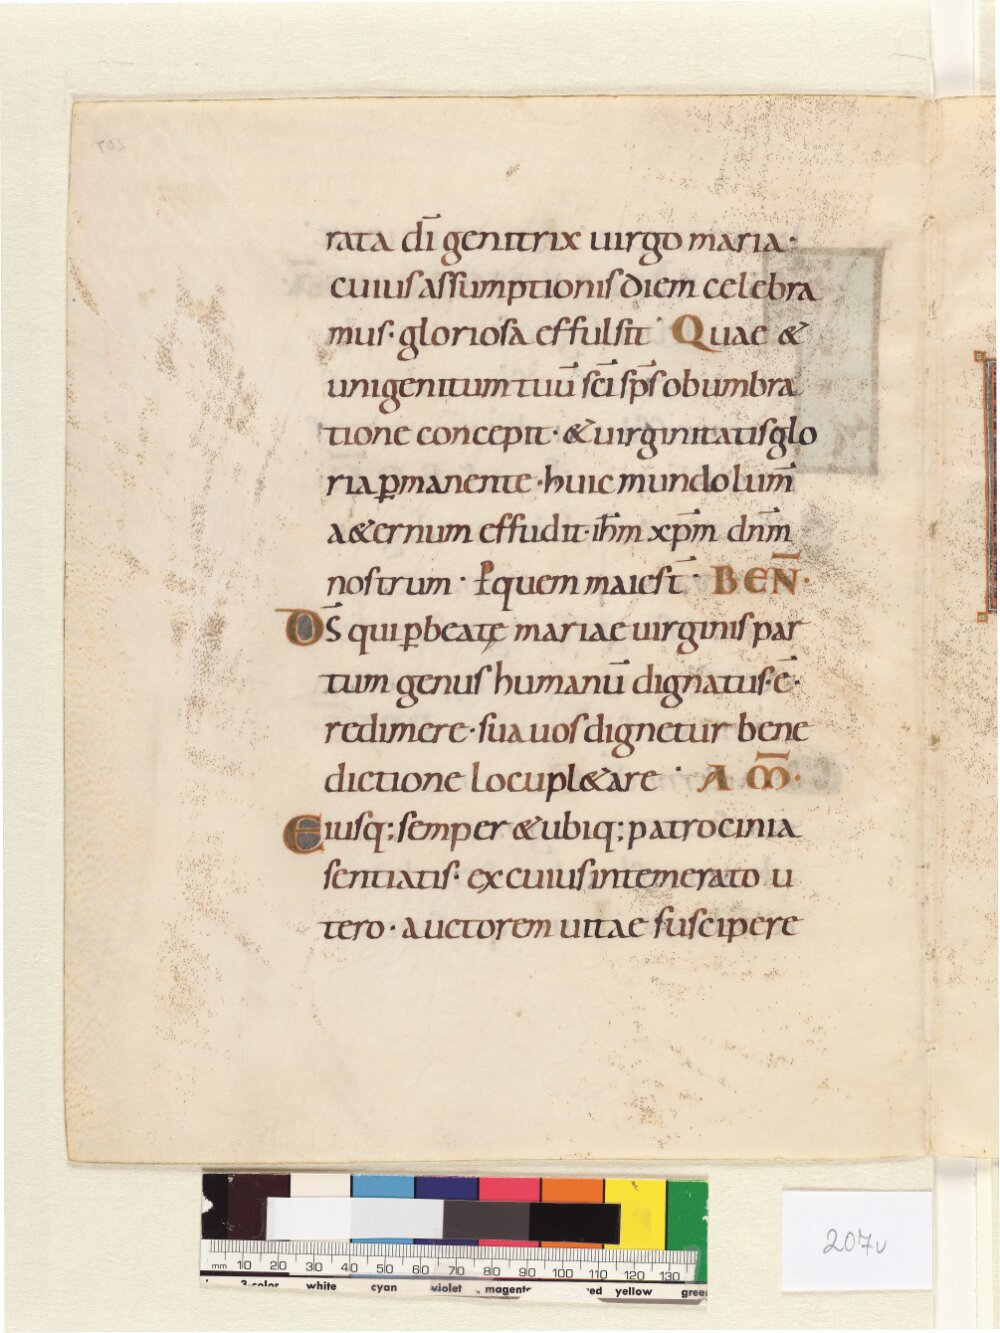 rata dī genitrix uirgo maria·
cuius assumptionis diem celebra
mus· gloriosa effulsit· Quae &
unigenitum tuū scī sps̄ obumbra
tione concepit· & uirginitatis glo
ria ꝑmanente· huic mundo lum̄
a&ernum effudit· ih̄m xp̄m dn̄m
nostrum· P quem maiest̄· BEN̄·
D̄S qui ꝑ beatę mariae uirginis par
tum genus humanū dignatus· ē·
redimere· sua uos dignetur bene
dictione locupl&are· A M̄·
Eiusq; semper & ubiq; patrocinia
sentiatis· ex cuius intemerato u
tero· auctorem uitae suscipere
207v
mm 10 20 30 40 50 60 70 80 90 100 110 120 130
3-color white cyan violet magenta red yellow green